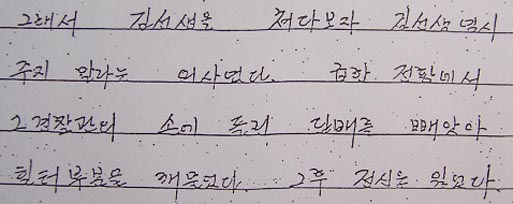 그래서 김선생을 쳐다보자 김선생 역시
주지 말라는 의사였다. 급한 정황에서
그 경찰관의 손에 들린 담배를 빼앗아
휠터부분을 깨물었다. 그후 정신을 잃었다.